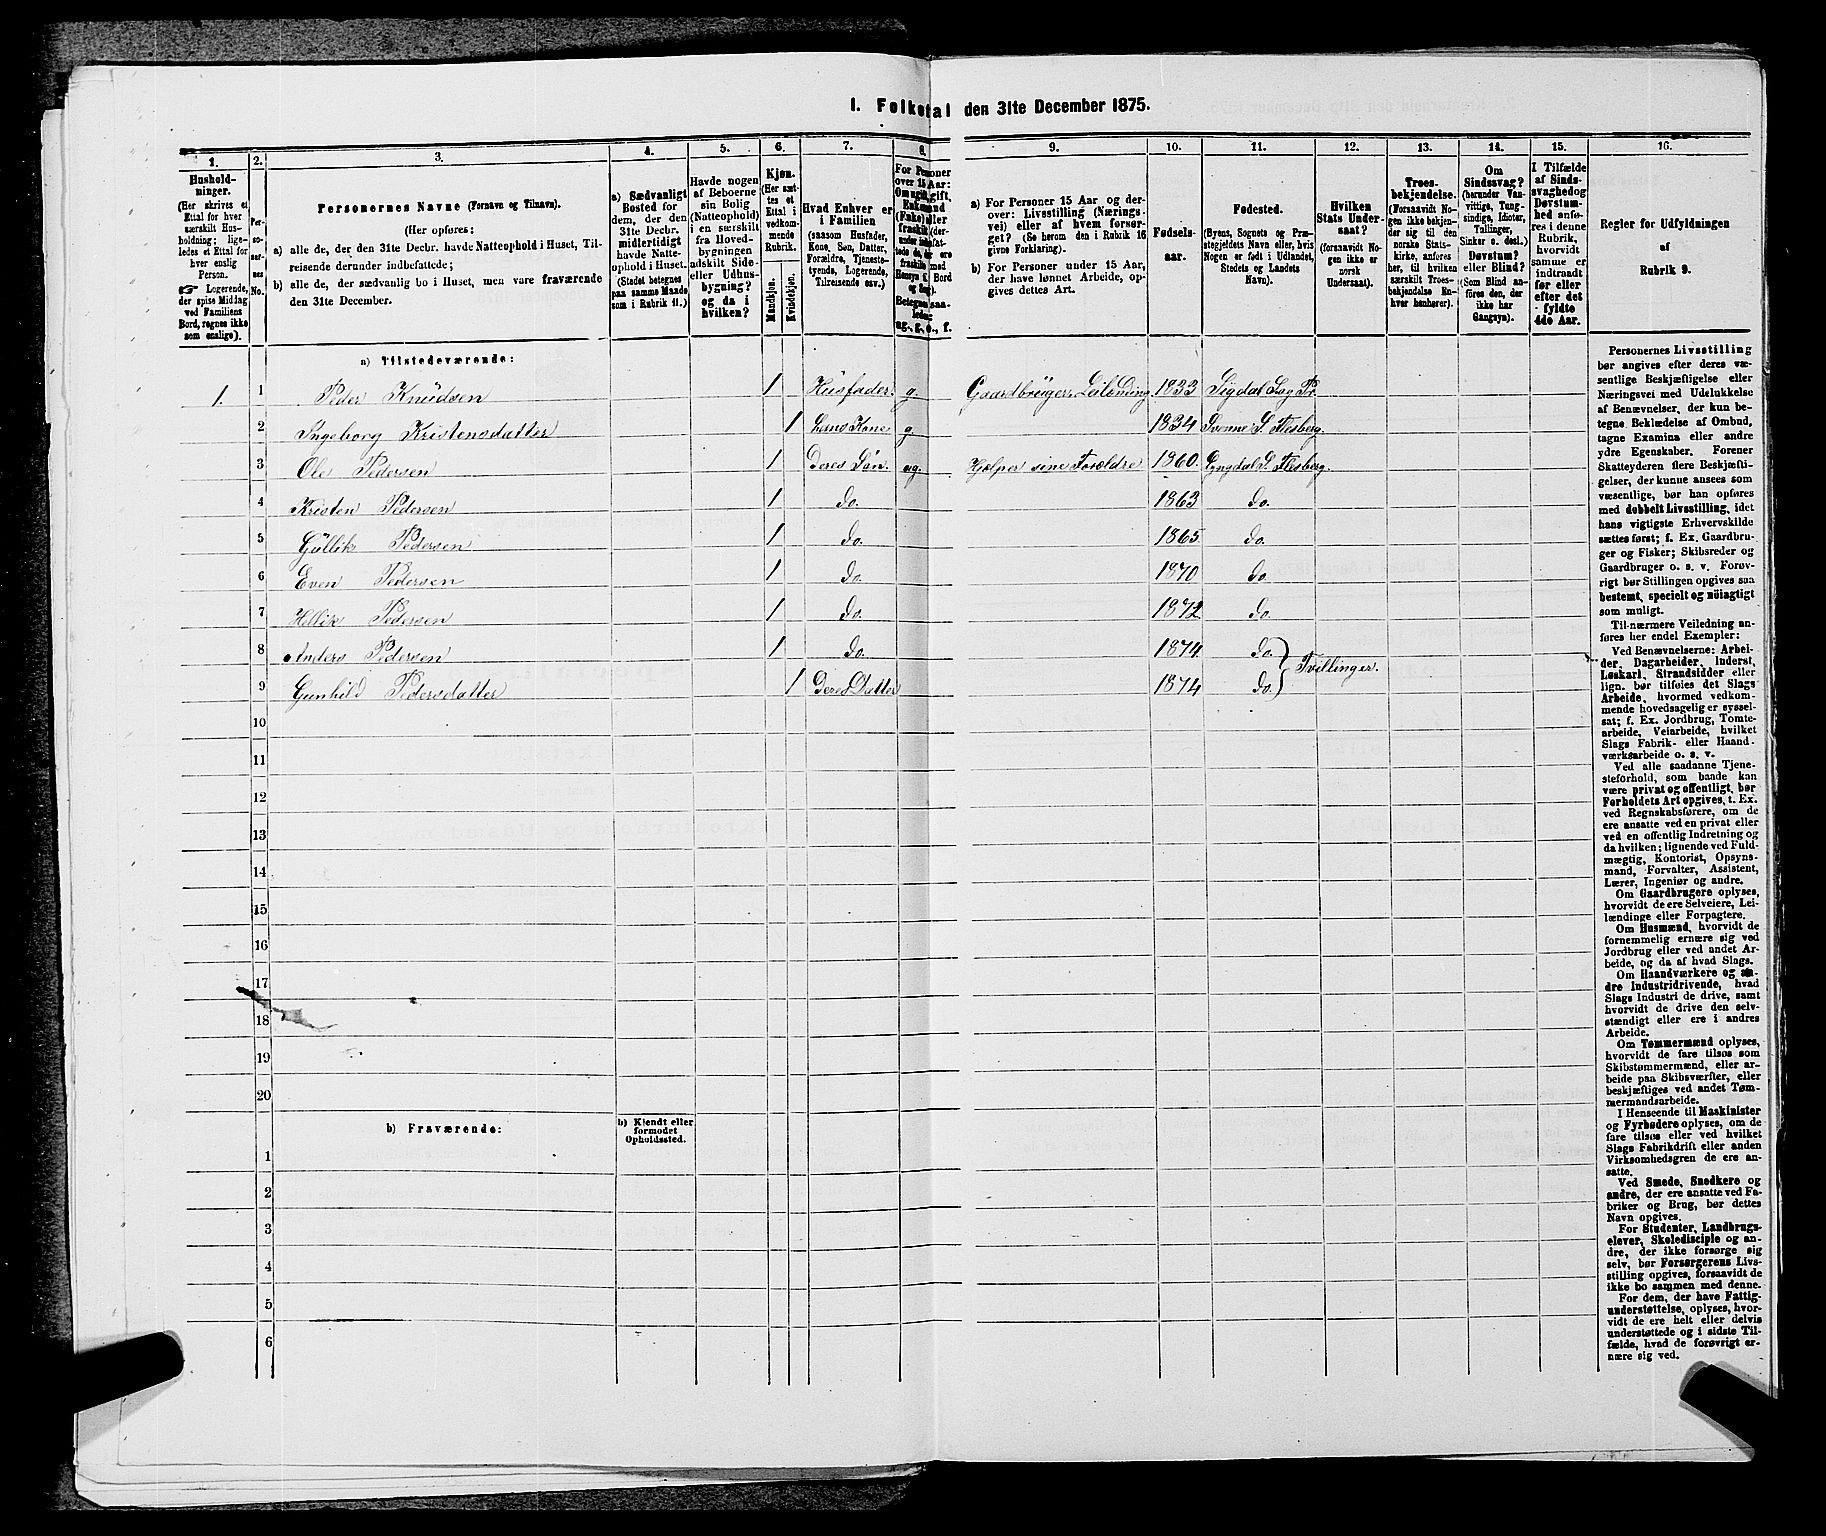 I. Folketal den 31te December 1875.
1. 2. 3. 4. 5. 6. 7. 8. 9. 10. 11. 12. 13. 14. 15. 16.
Husholdninger.
(Her skrives et
Ettal for hver
særskilt Husholdning;
ligeledes et Ettal for
hver enslig
Person.
☞ Logerende,
der spise Middag
ved Familiens
Bord, regnes ikke
som enslige).
Personernes No.
Personernes Navne (Fornavn og Tilnavn).
(Her opføres:
a) alle de, der den 31te Decbr. havde Natteophold i Huset, Tilreisende derunder indbefattede;
b) alle de, der sædvanlig bo i Huset, men vare fraværende
den 31te December.
a) Sædvanligt
Bosted for
dem, der den
31te Decbr.
midlertidigt
havde Natteophold i Huset.
(Stedet betegnes
paa samme Maade
som i Rubrik 11.)
Havde nogen
af Beboerne
sin Bolig
(Natteophold)
i en særskilt
fra Hovedbygningen
adskilt Side-
eller Udhusbygning?
og da i
hvilken?
Kjøn.
(Her sættes et
Ettal i
vedkommende
Rubrik.
Mandkjøn.
Kvindekjøn.
Hvad Enhver er
i Familien
(saasom Husfader,
Kone, Søn, Datter,
Forældre, Tjenestetyende, Logerende,
Tilreisende osv.)
For Personer
over 15 Aar:
Betegnes saaledes:
ug., g., e., f.
a) For Personer 15 Aar og derover: Livsstilling (Næringsvei) eller af hvem forsørget? (Se herom den i Rubrik 16
givne Forklaring).
b) For Personer under 15 Aar,
der have lønnet Arbeide, opgives dettes Art.
Fødselsaar.
Fødested.
(Byens, Sognets og Præstegjeldets Navn eller, hvis
Nogen er født i Udlandet,
Stedets og Landets
Navn).
Hvilken
Stats Undersaat?
(forsaavidt Nogen ikke er
norsk
Undersaat).
Troesbekjendelse.
(Forsaavidt Nogen ikke bekjender sig til den
norske Statskirke, anføres
her, til hvilken
særskilt Troesbekjendelse Enhver henhører).
Om
Sindssvag?
(herunder Vanvittige, Tungsindige, Idioter,
Tullinger,
Sinker o. desl.)
Døvstum?
eller Blind?
(Som Blind anføres den, der
ikke har
Gangsyn).
I Tilfælde
af Sindssvaghed og
Døvstumhed anføres i denne
Rubrik,
hvorvidt
samme er
indtraadt
før eller
efter det
fyldte
4de Aar.
Regler for Udfyldningen
af
Rubrik 9.
a) Tilstedeværende:
1. 1 Peder Knudsen 1 Husfader. g. Gaardbruger. Leilænding 1833 Sigdal Sag Pr.
2 Ingeborg Kristensdatter 1 hans Kone g. 1834 Svenne S. Flesberg.
3 Ole Pedersen 1 Deres Søn. ug. Hjælper sine Forældre 1860. Lyngdal S. Flesberg.
4 Kristen Pedersen 1 do. 1863 do.
5 Gullik Pedersen 1 do. 1865 do.
6 Even Pedersen 1 do. 1870 do.
7 Hellik Pedersen 1 do. 1872 do.
8 Anders Pedersen 1 do. 1874. do. } Tvillinger.
9 Gunhild Pedersdatter 1 Deres Datter 1874 do.
10
11
12
13
14
15
16
17
18
19
20
b) Fraværende:
b) Kjendt eller
formodet
Opholdssted.
1
2
3
4
5
6
Personernes Livsstilling
bør angives efter deres væsentlige Beskjæftigelse eller
Næringsvei med Udelukkelse
af Benævnelser, der kun betegne Beklædelse af Ombud,
tagne Examina eller andre
ydre Egenskaber. Forener
Skatteyderen flere Beskjæftigelser, der kunne ansees som
væsentlige, bør han opføres
med dobbelt Livsstilling, idet
hans vigtigste Erhvervskilde
sættes først; f. Ex. Gaardbruger og Fisker; Skibsreder og
Gaardbruger o. s. v. Forøvrigt bør Stillingen opgives saa
bestemt, specielt og nöiagtigt
som muligt.
Til nærmere Veiledning anføres her endel Exempler:
Ved Benævnelserne: Arbeider, Dagarbeider, Inderst,
Løskarl, Strandsidder eller
lign. bør tilføies det Slags
Arbeide, hvormed vedkommende hovedsagelig er sysselsat; f. Ex. Jordbrug, Tomtearbeide, Veiarbeide, hvilket
Slags Fabrik- eller Haandværksarbeide o. s. v.
Ved alle saadanne Tjenesteforhold, som baade kan
være privat og offentligt, bør
Forholdets Art opgives, t. Ex.
ved Regnskabsførere, om de
ere ansatte ved en privat eller
ved en offentlig Indretning og
da hvilken; lignende ved Fuldmægtig, Kontorist, Opsynsmand, Forvalter, Assistent,
Lærer, Ingeniør og andre.
Om Gaardbrugere oplyses,
hvorvidt de ere Selveiere, Leilændinge eller Forpagtere.
Om Husmænd, hvorvidt de
fornemmelig ernære sig ved
Jordbrug eller ved andet Arbeide, og da af hvad Slags.
Om Haandværkere og andre Industridrivende, hvad
Slags Industri de drive, samt
hvorvidt de drive den selvstændigt eller ere i andres
Arbeide.
Om Tømmermænd oplyses,
hvorvidt de fare tilsøs som
Skibstømmermænd, eller arbeide paa Skibsværfter, eller
beskjæftiges ved andet Tømmermandsarbeide.
I Henseende til Maskinister
og Fyrbødere oplyses, om de
fare tilsøs eller ved hvilket
Slags Fabrikdrift eller anden
Virksomhedsgren de ere ansatte.
Ved Smede, Snedkere og
andre, der ere ansatte ved Fabriker og Brug, bør dettes
Navn opgives.
For Studenter, Landbrugselever, Skoledisciple og andre, der ikke forsørge sig
selv, bør Forsørgerens Livsstilling opgives, forsaavidt de
ikke bo sammen med denne.
For dem, der have Fattigunderstøttelse, oplyses, hvorvidt de ere helt eller delvis
understøttede og i sidste Tilfælde, hvad de forøvrigt ernære sig ved.